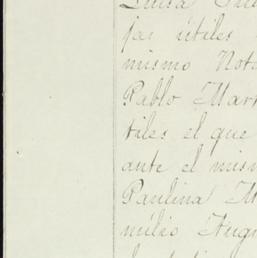 Luisa
jas útiles
mismo Not
Pablo Mar
tiles el que
ante el mism
Paulina M
milio Aug